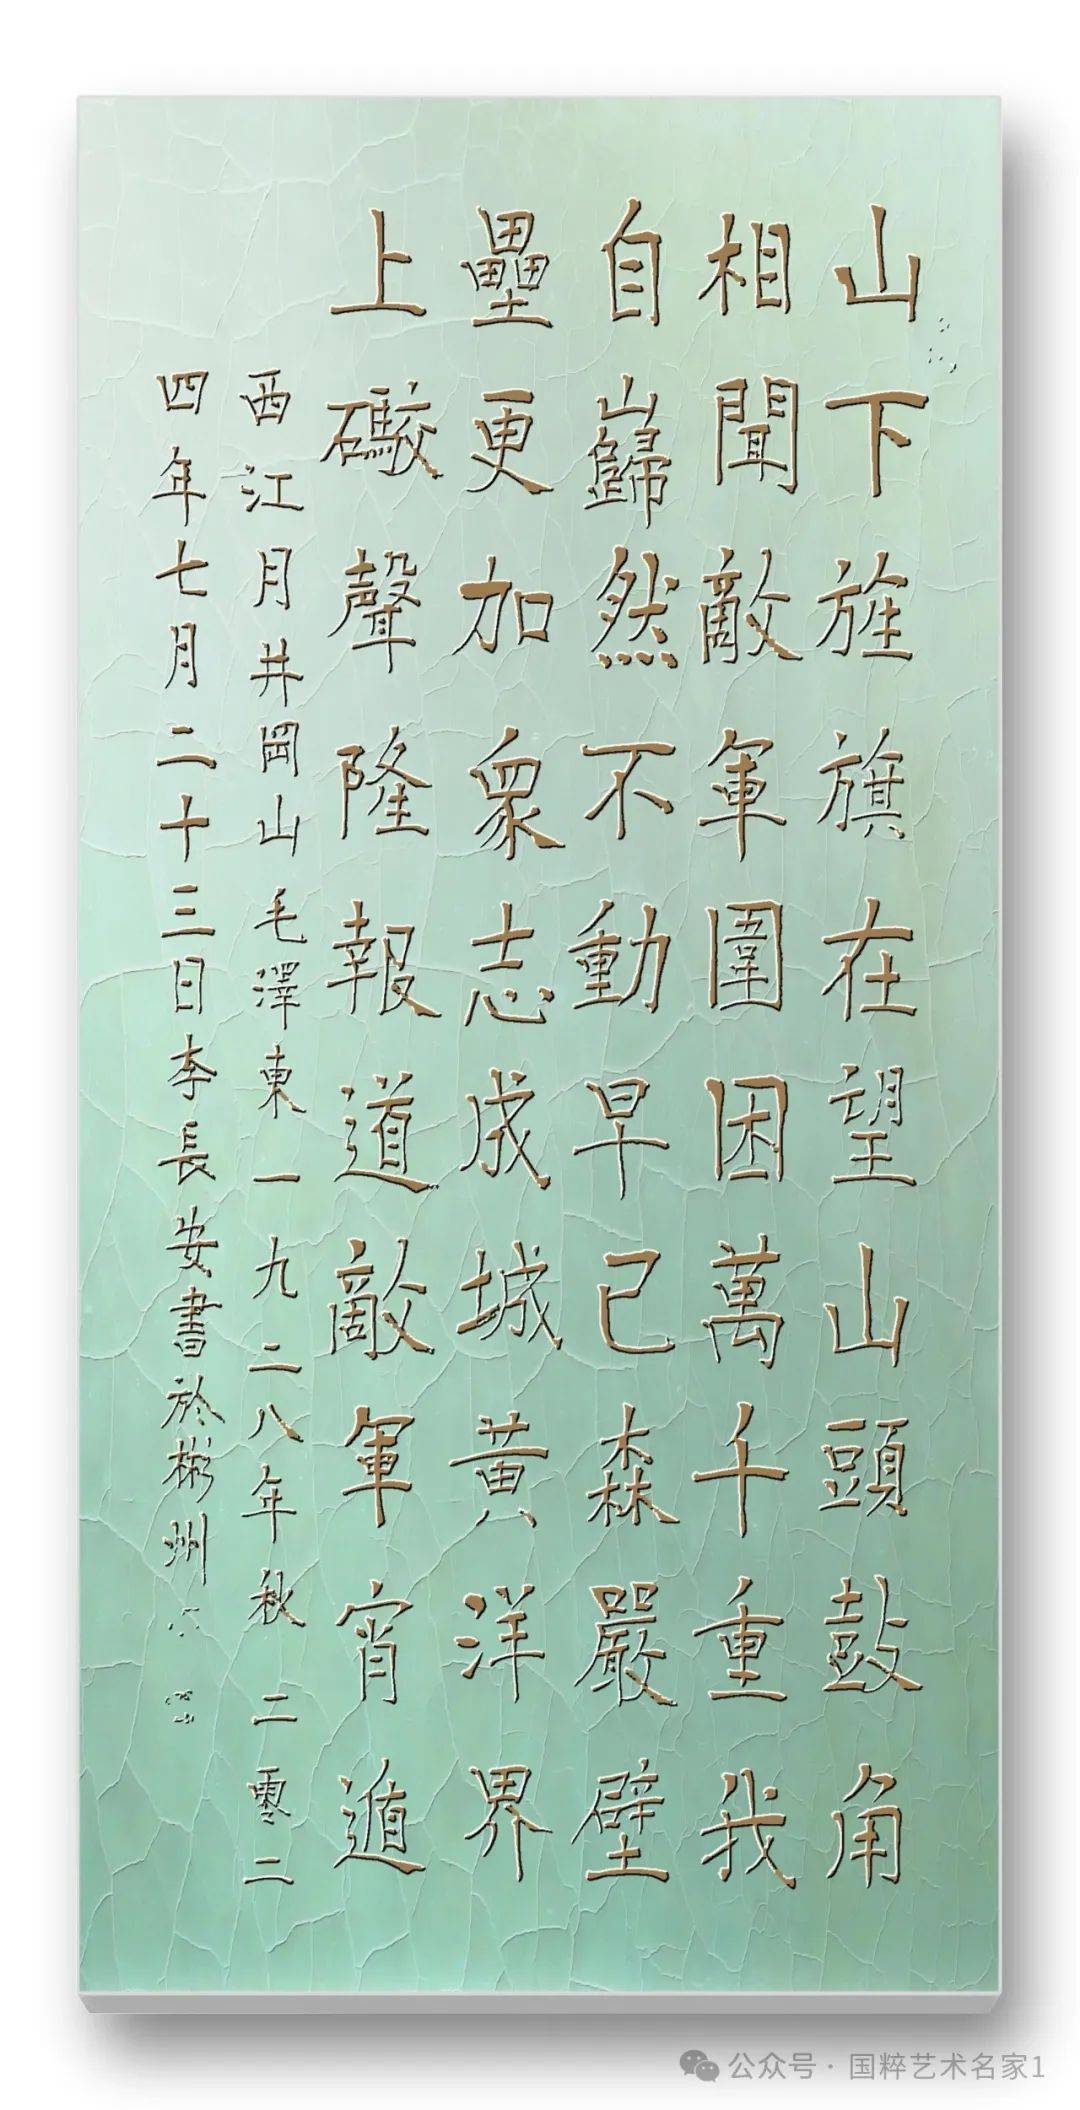 山下旌旗在望山頭鼓角
相聞敵軍圍困萬千重我
自巋然不動早已森嚴壁
壘更加衆志成城黃洋界
上礮聲隆報道敵軍宵遁
西江月井岡山毛澤東一九二八年秋二零二
四年七月二十三日李長安書於彬州
公众号·国粹艺术名家1